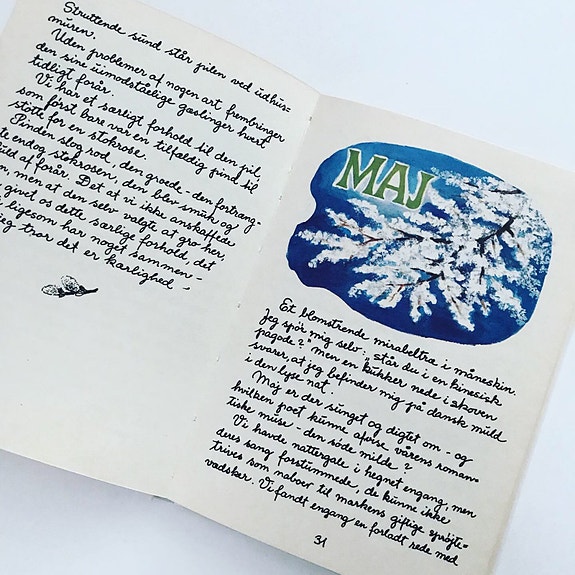 Struttende sund står pilen ved udhus-
muren.
Uden problemer af nogen art frembringer
den sine uimodståelige gæslinger hvert
tidligt forår.
Vi har et særligt forhold til den pil,
som først bare var en tilfældig pind til
støtte for en stokrose.
Pinden slog rod, den groede - den fortrang-
te endog stokrosen, den blev smuk og
bud af forår. Det at vi ikke anskaffede
n, men at den selv valgte at gro her,
givet os dette særlige forhold, det
ligesom har noget sammen -
jeg tror det er kærlighed.
MAJ
Et blomstrende mirabeltræ i måneskin.
Jeg spör mig selv: „står du i en kinesisk
pagode?" men en kukker nede i skoven
svarer, at jeg befinder mig på dansk muld
i den lyse nat.
Maj er der sunget og digtet om - og
hvilken poet kunne afvise vårens roman-
tiske muse - den søde milde?
Vi havde nattergale i hegnet engang, men
deres sang forstummede, de kunne ikke
trives som naboer til markens giftige sprøjte-
vædsker. Vi fandt engang en forladt rede med
31